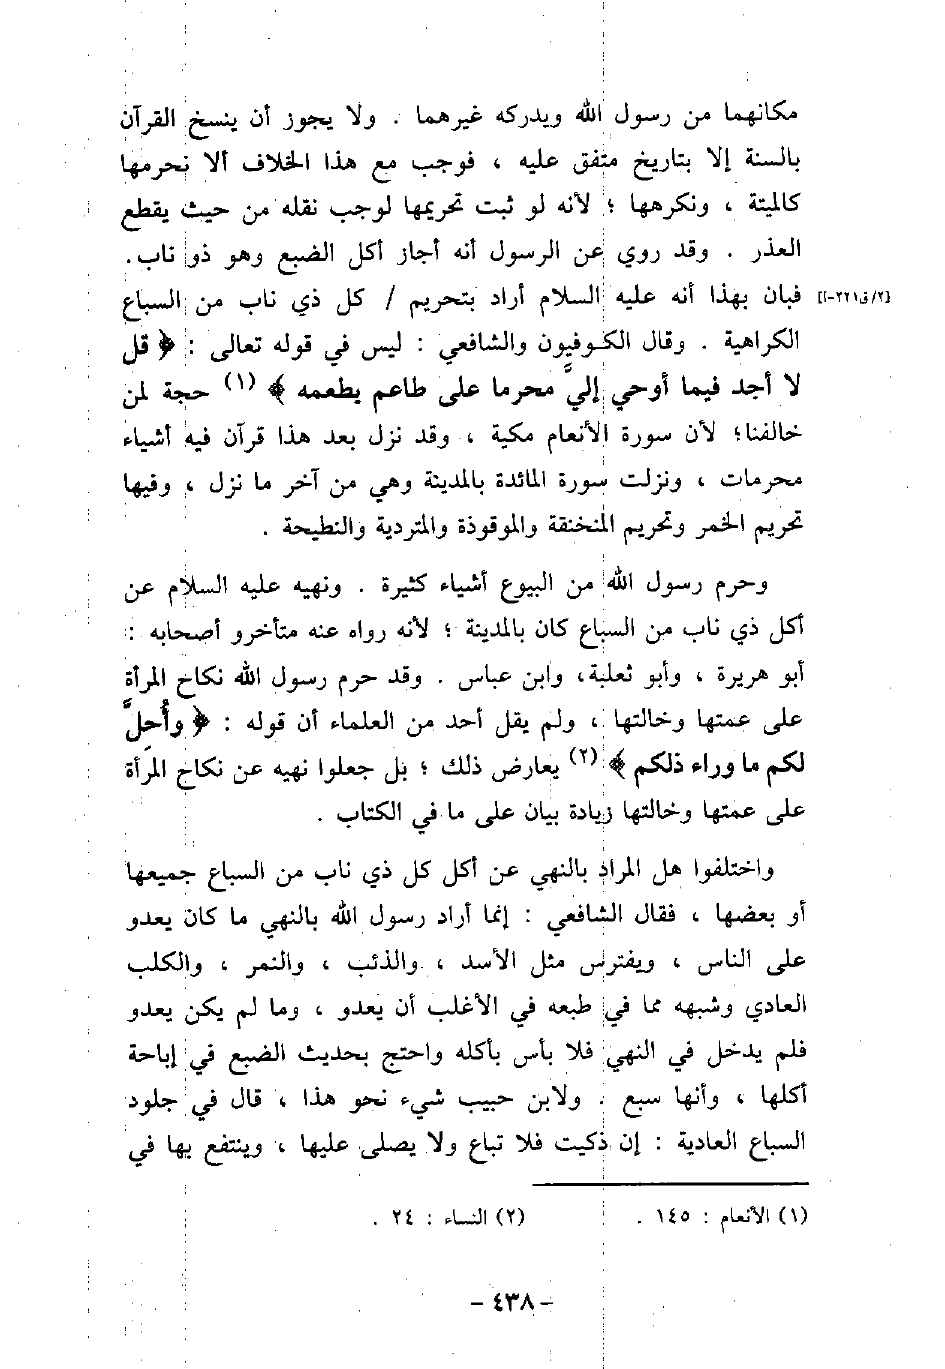 مكانهما من رسول الله ويدركه غيرهما . ولا يجوز أن ينسخ القرآن
بالسنة إلا بتاريخ متفق عليه ، فوجب مع هذا الخلاف ألا نحرمها
كالميتة ، ونكرهها ؛ لأنه لو ثبت تحريمها لوجب نقله من حيث يقطع
العذر . وقد روي عن الرسول أنه أجاز أكل الضبع وهو ذو ناب .
[٢/ق٢٢١-أ] فبان بهذا أنه عليه السلام أراد بتحريم / كل ذي ناب من السباع
الكراهية . وقال الكوفيون والشافعي : ليس في قوله تعالى : ﴿ قل
لا أجد فيما أوحي إليَّ محرما على طاعم يطعمه ﴾ (١) حجة لمن
خالفنا؛ لأن سورة الأنعام مكية ، وقد نزل بعد هذا قرآن فيه أشياء
محرمات ، ونزلت سورة المائدة بالمدينة وهي من آخر ما نزل ، وفيها
تحريم الخمر وتحريم المنخنقة والموقوذة والمتردية والنطيحة .
وحرم رسول الله من البيوع أشياء كثيرة . ونهيه عليه السلام عن
أكل ذي ناب من السباع كان بالمدينة ؛ لأنه رواه عنه متأخرو أصحابه :
أبو هريرة ، وأبو ثعلبة، وابن عباس . وقد حرم رسول الله نكاح المرأة
على عمتها وخالتها ، ولم يقل أحد من العلماء أن قوله : ﴿ وأُحِلَّ
لكم ما وراء ذلكم ﴾ (٢) يعارض ذلك ؛ بل جعلوا نهيه عن نكاح المرأة
على عمتها وخالتها زيادة بيان على ما في الكتاب .
واختلفوا هل المراد بالنهي عن أكل كل ذي ناب من السباع جميعها
أو بعضها ، فقال الشافعي : إنما أراد رسول الله بالنهي ما كان يعدو
على الناس ، ويفترس مثل الأسد ، والذئب ، والنمر ، والكلب
العادي وشبهه مما في طبعه في الأغلب أن يعدو ، وما لم يكن يعدو
فلم يدخل في النهي فلا بأس بأكله واحتج بحديث الضبع في إباحة
أكلها ، وأنها سبع . ولابن حبيب شيء نحو هذا ، قال في جلود
السباع العادية : إن ذكيت فلا تباع ولا يصلى عليها ، وينتفع بها في
(١) الأنعام : ١٤٥ . (٢) النساء : ٢٤ .
- ٤٣٨ -